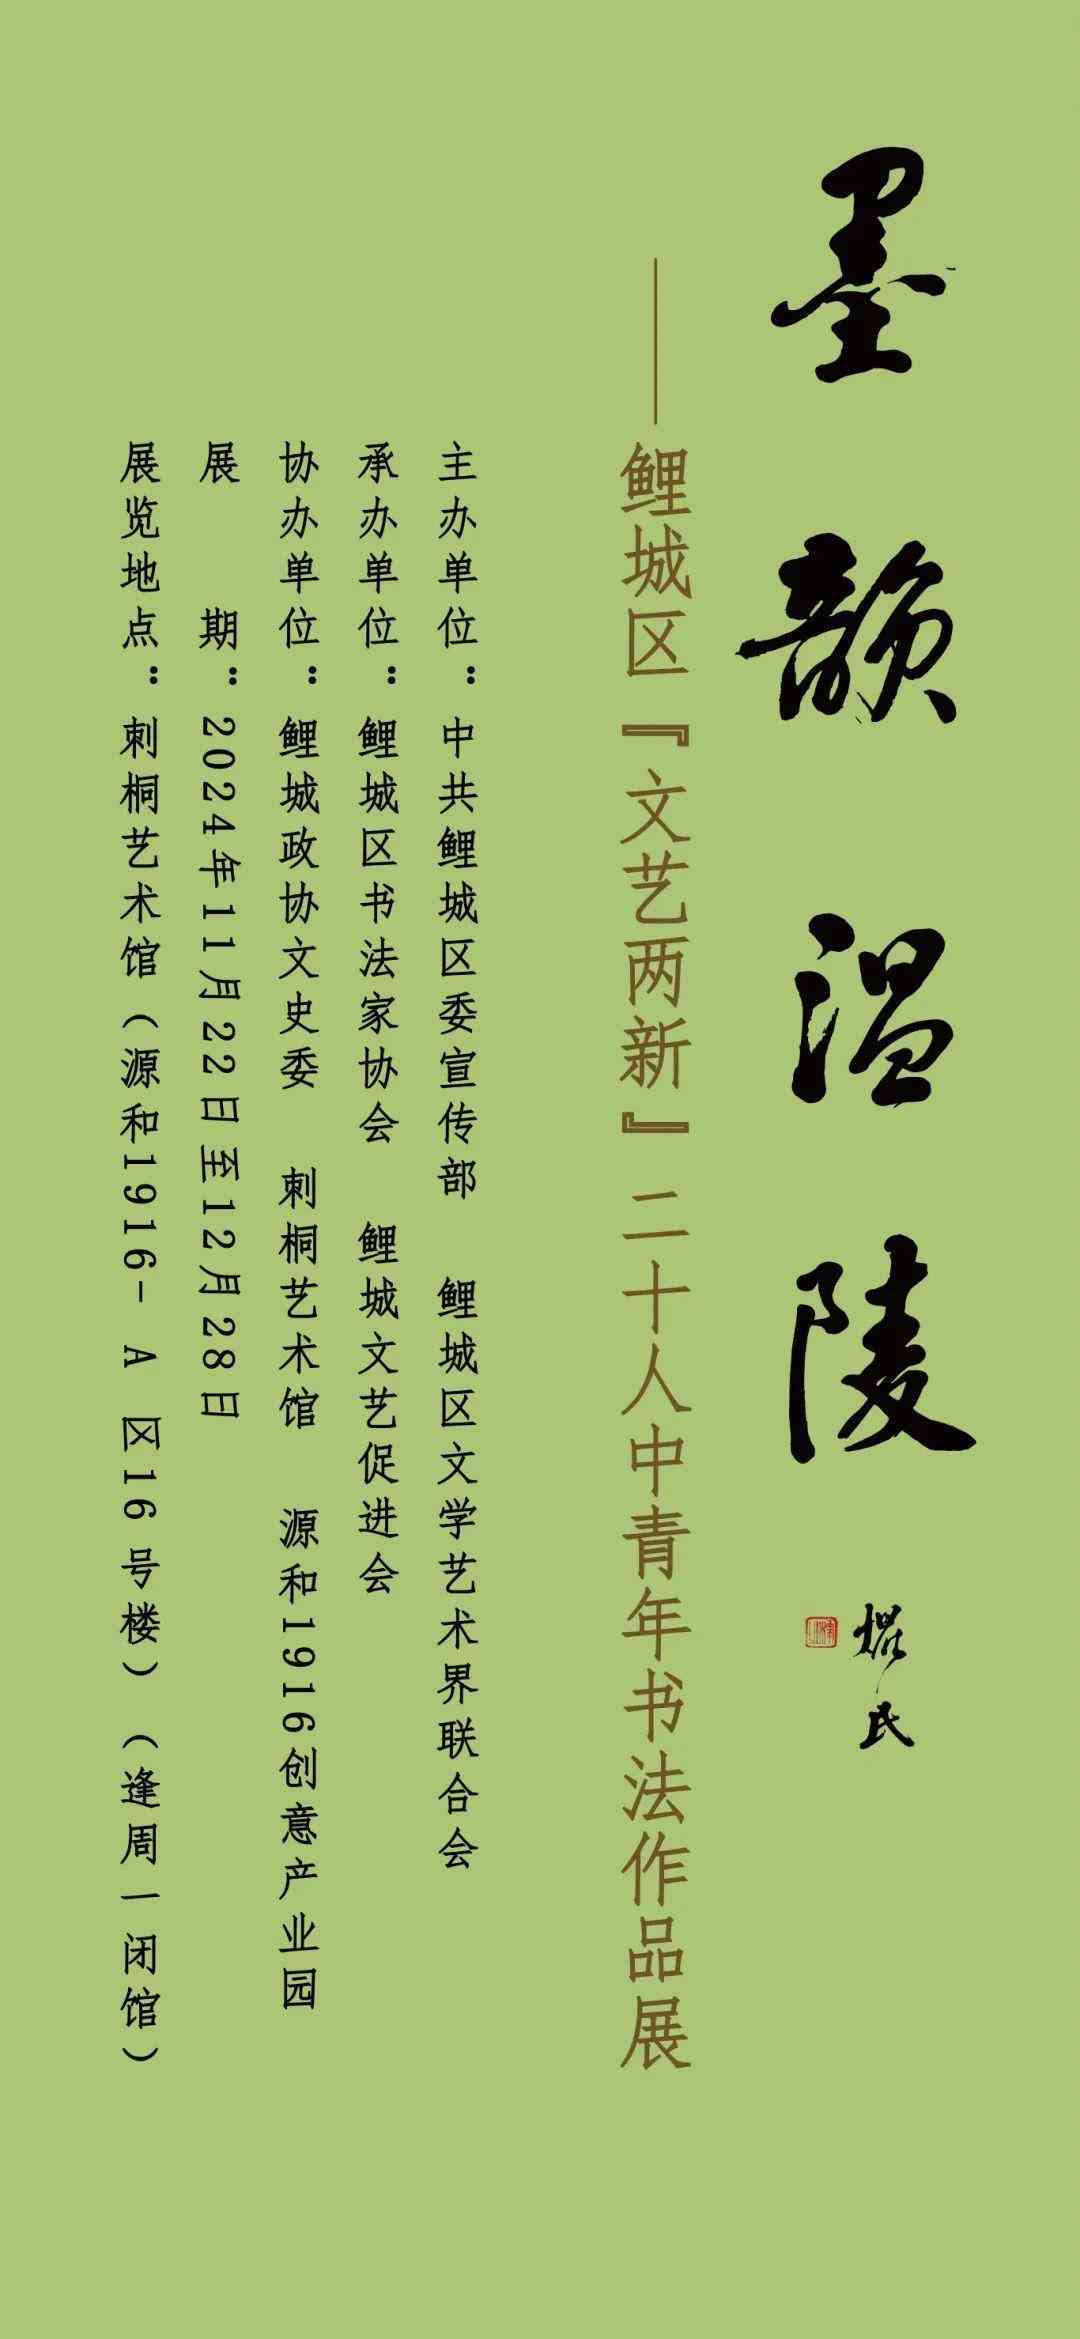 墨韵温陵
焜民
——鲤城区『文艺两新』二十人中青年书法作品展
主办单位：中共鲤城区委宣传部 鲤城区文学艺术界联合会
承办单位：鲤城区书法家协会 鲤城文艺促进会
协办单位：鲤城政协文史委 刺桐艺术馆 源和1916创意产业园
展 期：2024年11月22日至12月28日
展览地点：刺桐艺术馆（源和1916- A 区16号楼）（逢周一闭馆）